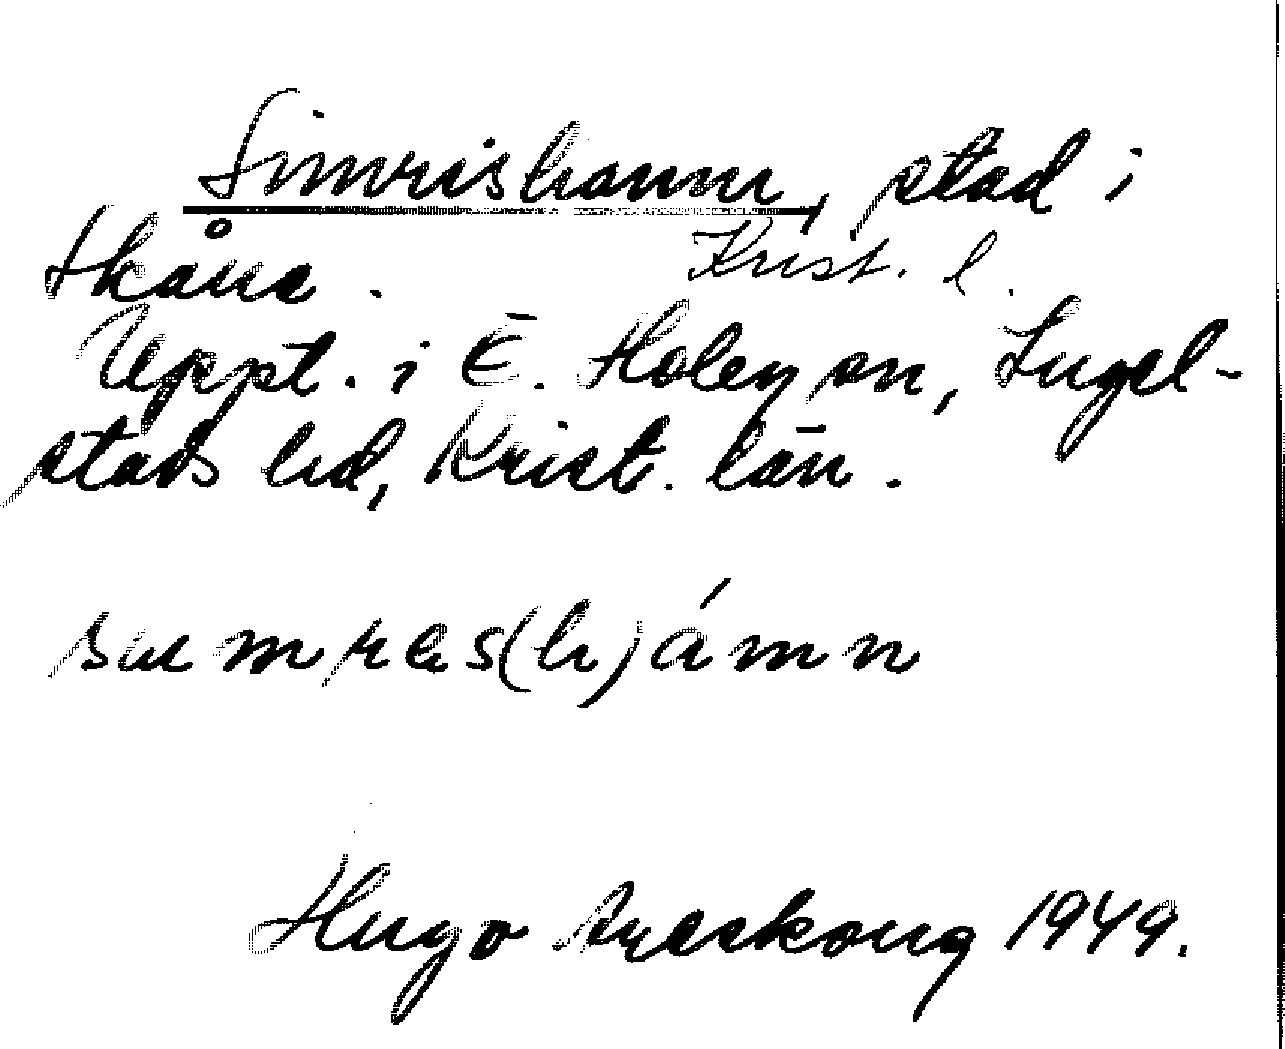 Simrishamn, stad i
Skåne. Krist. l.
Uppt. i Ē. Hoby sn, Ingel-
stads hd, Krist. län.
su m r es(h)ámn
Hugo Areskoug 1949.